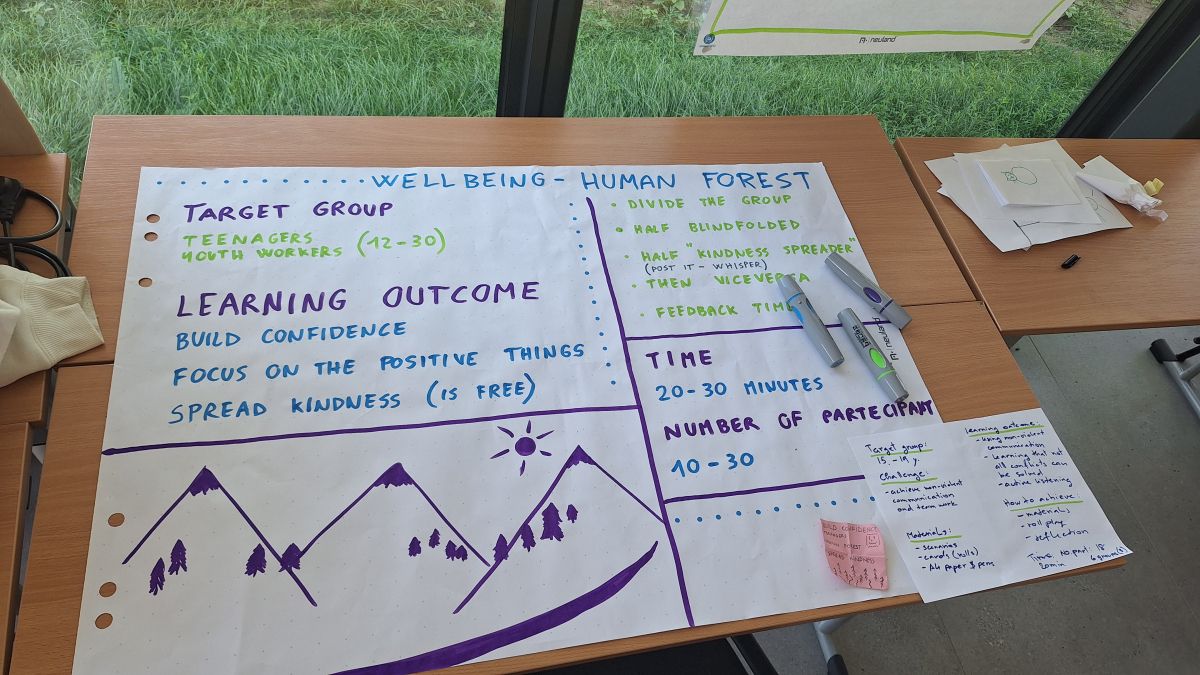 neuland
WELLBEING - HUMAN FOREST
TARGET GROUP
TEENAGERS
YOUTH WORKERS (12-30)
LEARNING OUTCOME
BUILD CONFIDENCE
FOCUS ON THE POSITIVE THINGS
SPREAD KINDNESS (IS FREE)
• DIVIDE THE GROUP
• HALF BLINDFOLDED
• HALF "KINDNESS SPREADER"
(POST IT - WHISPER)
• THEN VICEVERSA
• FEEDBACK TIME
TIME
20-30 MINUTES
NUMBER OF PARTECIPANT
10-30
neuland
Target group:
15.-19 y.
Challenge:
- achieve non-violent
communication
and team work
Materials:
- scenarios
- cards (rolls)
- A4 paper & pens
Learning outcome:
- using non-violent
communication
- Learning that not
all conflicts can
be solved
- active listening
How to achieve
- materials
- roll play
- reflection
No. part: 18
20min
BUILD CONFIDENCE
FOREST
KINDNESS